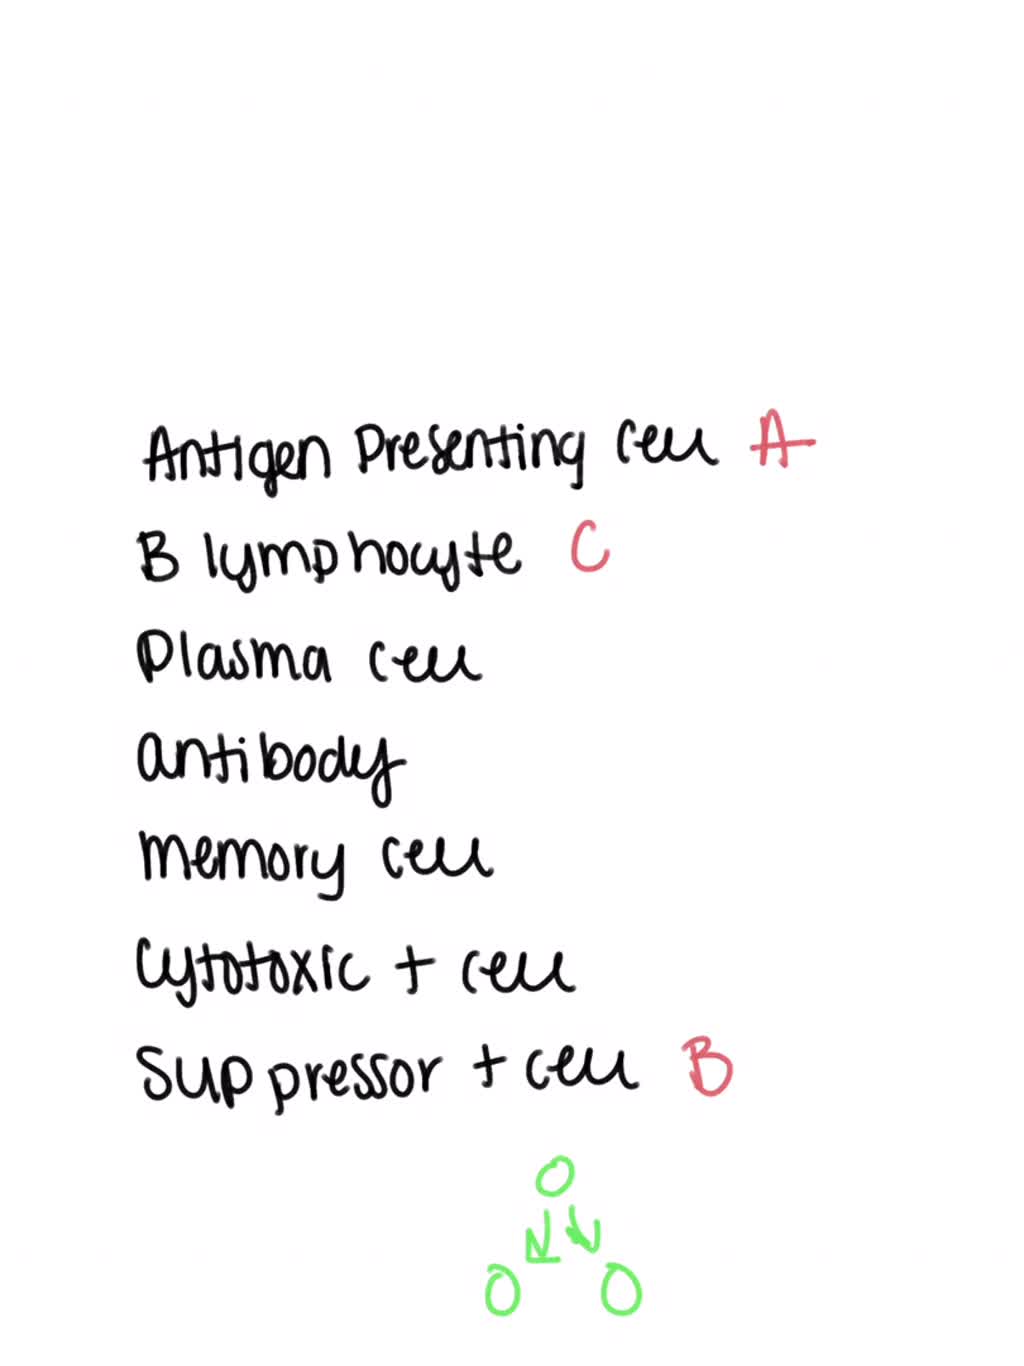 Antigen Presenting cell A
B lymphocyte C
Plasma cell
antibody
memory cell
Cytotoxic t cell
Suppressor t cell B